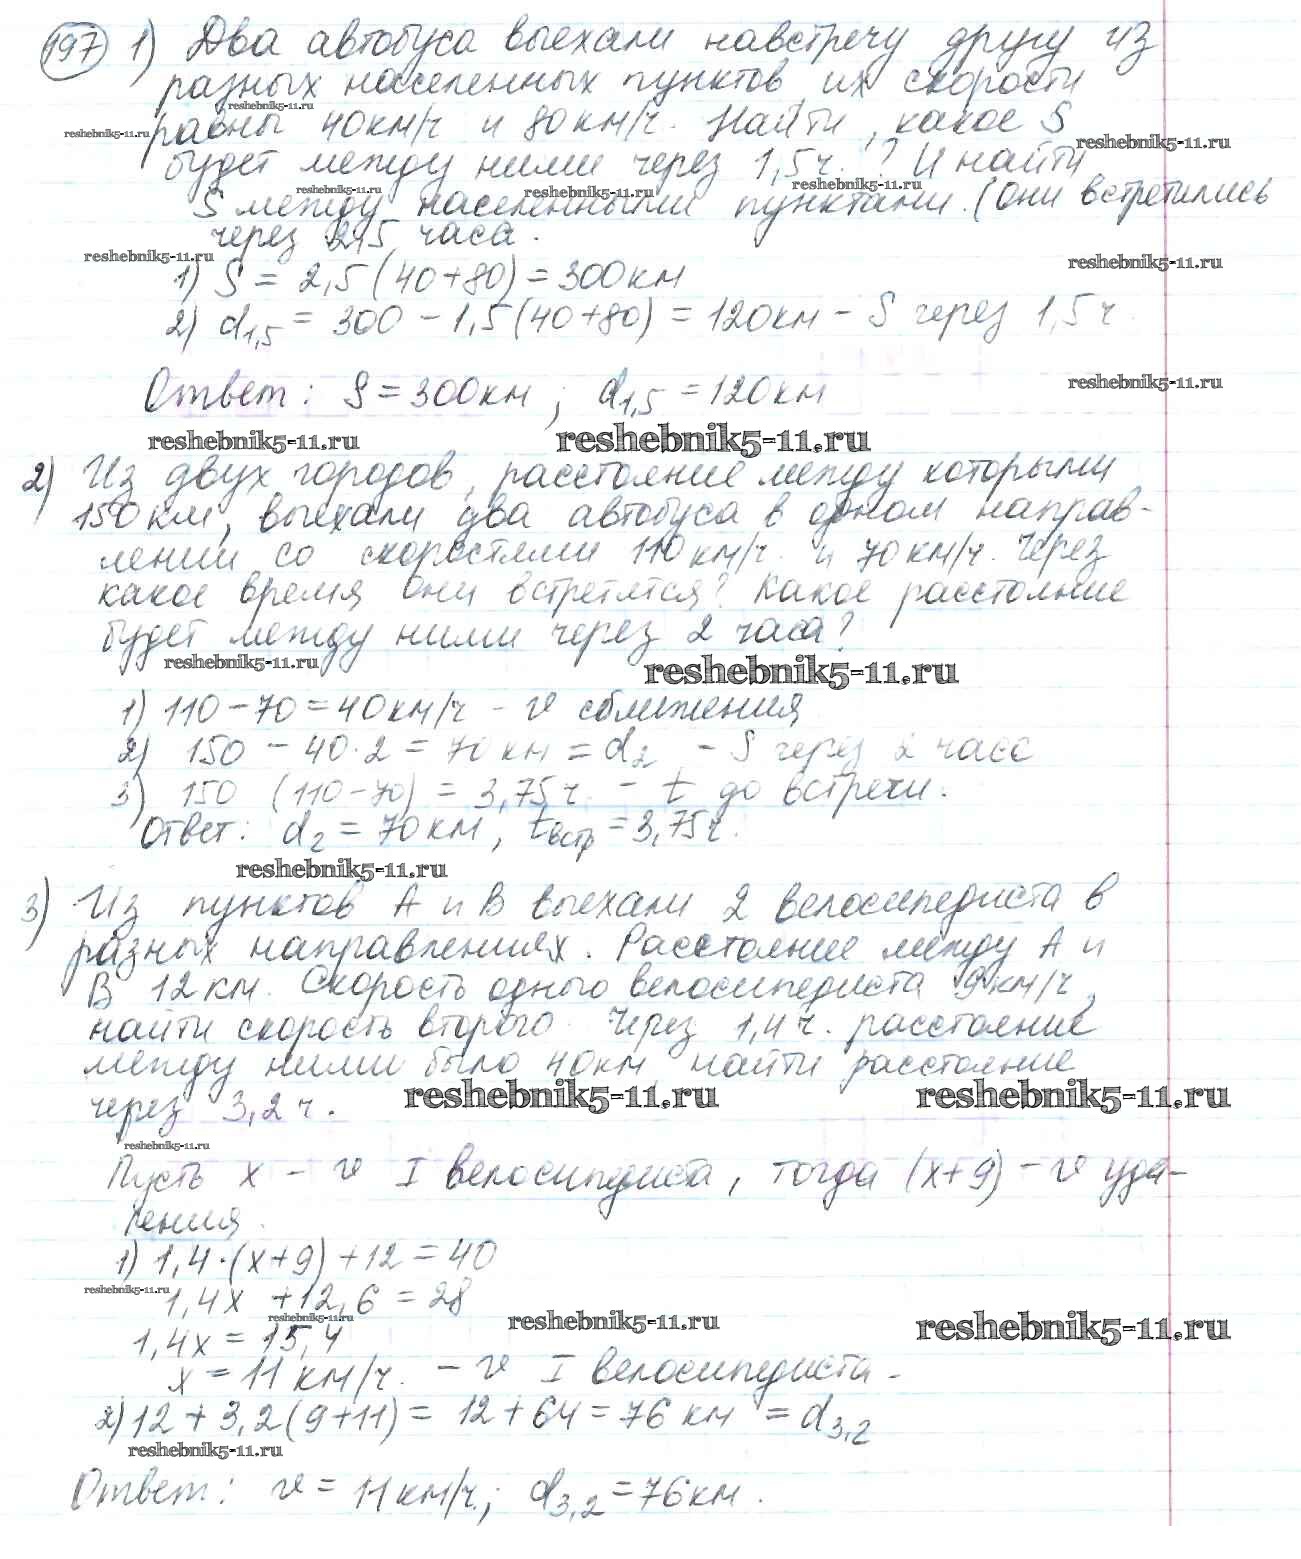 197 1) Два автобуса выехали навстречу другу из
разных населенных пунктов их скорости
reshebnik5-11.ru
равны 40км/ч и 80км/ч. Найти, какое S
reshebnik5-11.ru reshebnik5-11.ru
будет между ними через 1,5ч.? И найти
reshebnik5-11.ru reshebnik5-11.ru reshebnik5-11.ru
S между населенными пунктами. (Они встретились
через 2,5 часа.
reshebnik5-11.ru reshebnik5-11.ru
1) S = 2,5(40+80)=300км
2) d1,5 = 300 - 1,5(40+80) = 120км - S через 1,5ч.
Ответ: S=300км; d1,5=120км
reshebnik5-11.ru
reshebnik5-11.ru reshebnik5-11.ru
2) Из двух городов, расстояние между которыми
150км, выехали два автобуса в одном направ-
лении со скоростями 110км/ч. и 70км/ч. Через
какое время они встретятся? Какое расстояние
будет между ними через 2 часа?
reshebnik5-11.ru reshebnik5-11.ru
1) 110-70=40км/ч - v сближения
2) 150 - 40·2 = 70км = d2 - S через 2 часа
3) 150 (110-70) = 3,75ч. - t до встречи.
Ответ: d2=70км, tвстр=3,75ч.
reshebnik5-11.ru
3) Из пунктов А и В выехали 2 велосипедиста в
разных направлениях. Расстояние между А и
В 12км. Скорость одного велосипедиста 9км/ч,
найти скорость второго. Через 1,4ч. расстояние
между ними было 40км найти расстояние
через 3,2ч.
reshebnik5-11.ru reshebnik5-11.ru
reshebnik5-11.ru
Пусть х - v I велосипедиста, тогда (х+9) - v уда-
ления.
1) 1,4·(х+9)+12=40
reshebnik5-11.ru
1,4х+12,6=28
reshebnik5-11.ru reshebnik5-11.ru reshebnik5-11.ru
1,4х=15,4
х=11км/ч. - v I велосипедиста.
2) 12+3,2(9+11)=12+64=76км=d3,2
reshebnik5-11.ru
Ответ: v=11км/ч.; d3,2=76км.